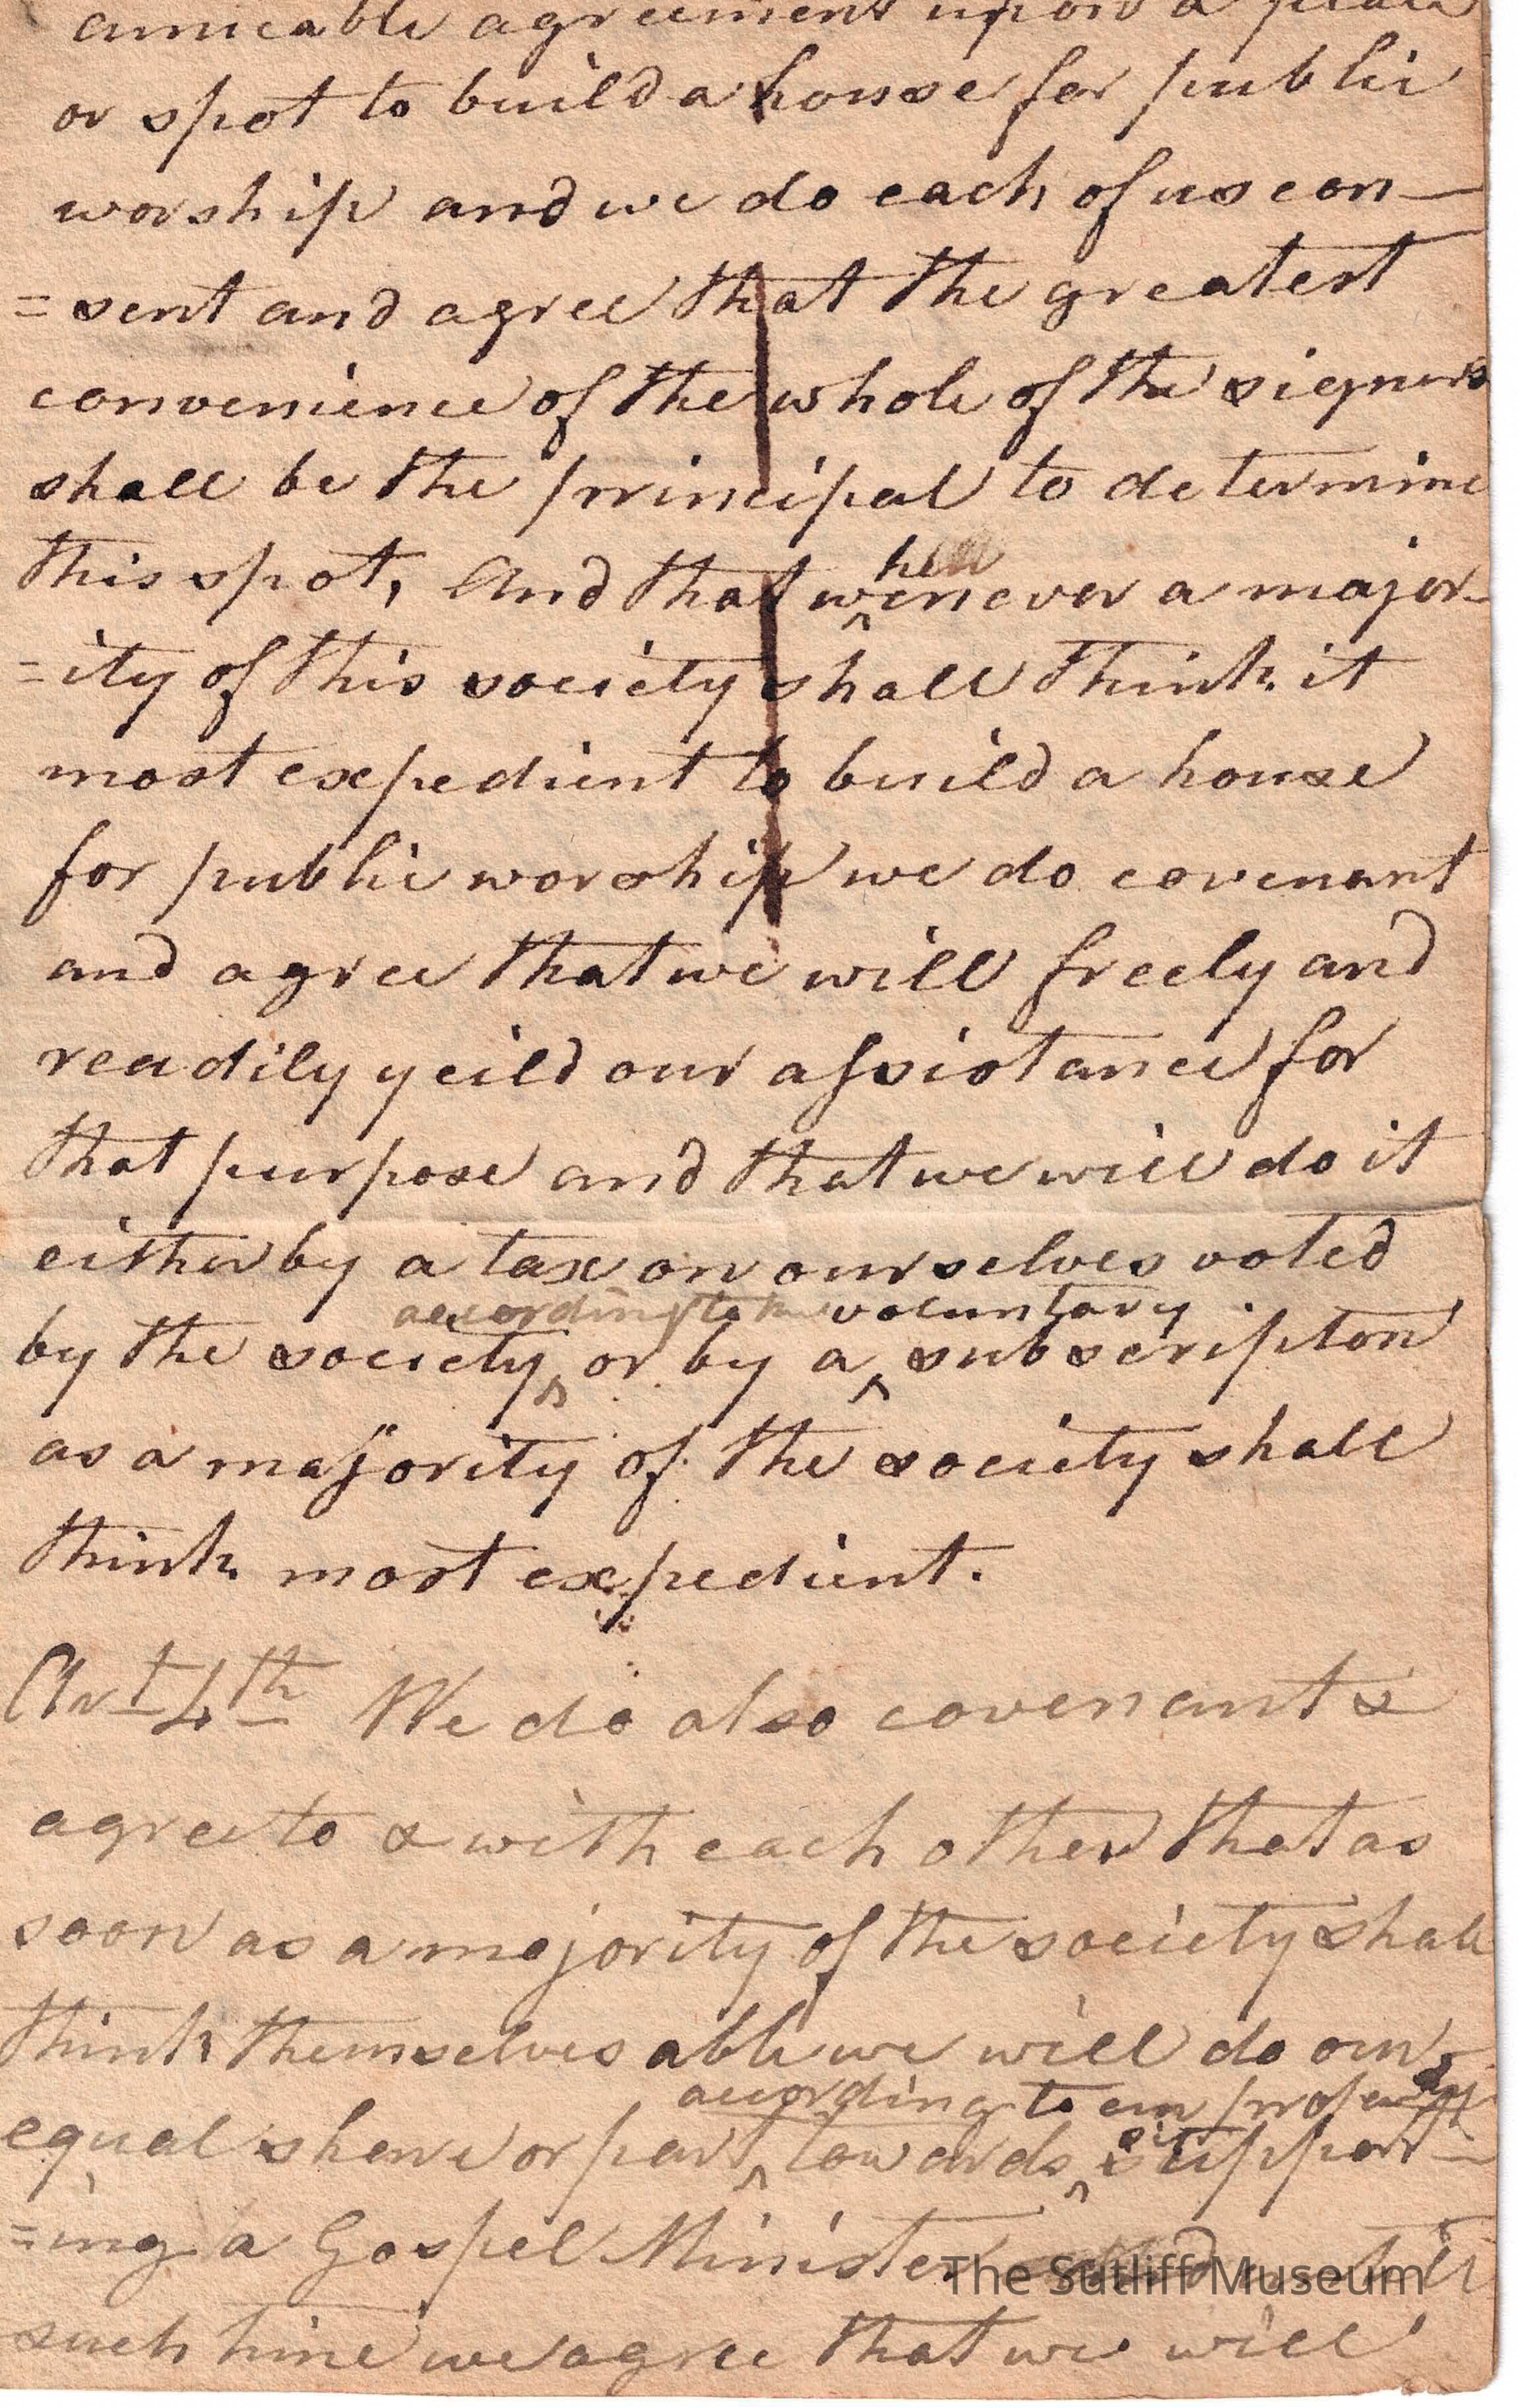 amicable agreement upon a place
or spot to build a house for public
worship and we do each of us con-
=sent and agree that the greatest
convenience of the whole of the signers
shall be the principal to determine
this spot, And that w^henever a major-
=ity of this society shall think it
most expedient to build a house
for public worship we do covenant
and agree that we will freely and
readily yeild our assistance for
that purpose and that we will do it
either by a tax on ourselves voted
according to voluntary
by the society^ or by a^ subscripton
as a majority of the society shall
think most expedient.
Art 4th We do also covenant &
agree to & with each other that as
soon as a majority of the society shall
think themselves able we will do our
according to our property
equal share or part^ towards^ support-
=ing a Gospel Minister until
such time we agree that we will
The Sutliff Museum